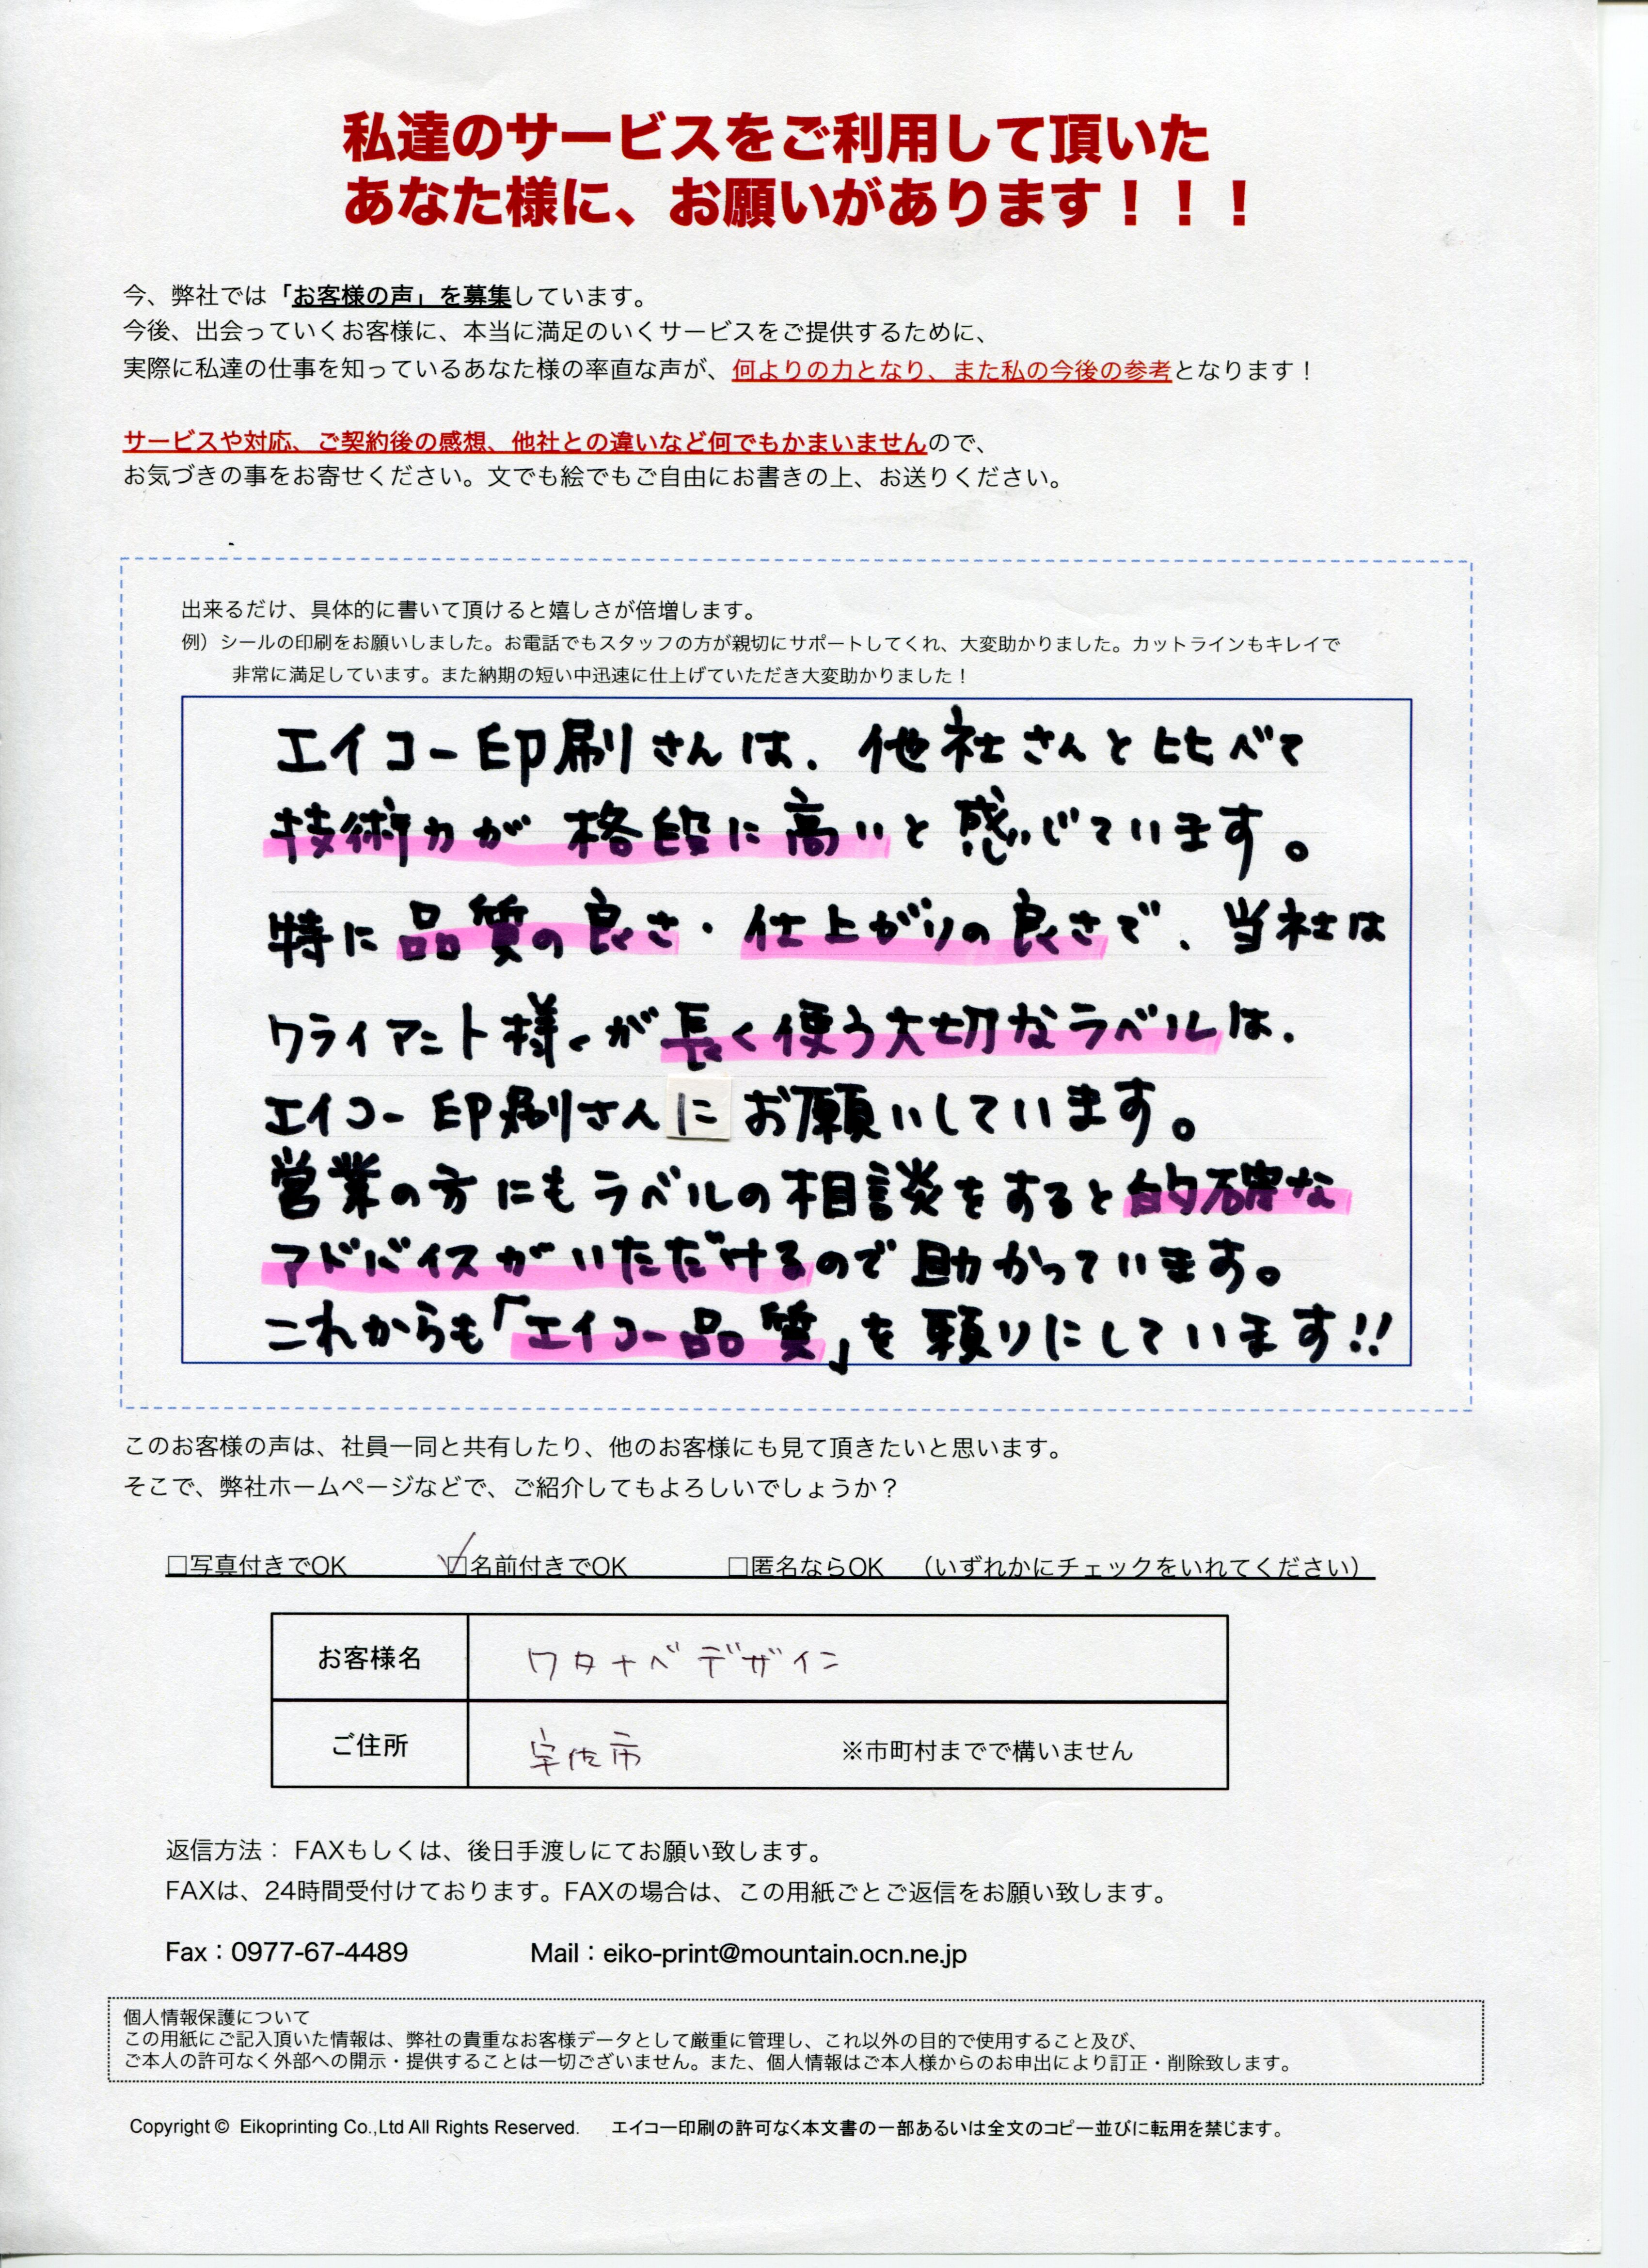 私達のサービスをご利用して頂いた
あなた様に、お願いがあります！！！
今、弊社では「お客様の声」を募集しています。
今後、出会っていくお客様に、本当に満足のいくサービスをご提供するために、
実際に私達の仕事を知っているあなた様の率直な声が、何よりの力となり、また私の今後の参考となります！
サービスや対応、ご契約後の感想、他社との違いなど何でもかまいませんので、
お気づきの事をお寄せください。文でも絵でもご自由にお書きの上、お送りください。
出来るだけ、具体的に書いて頂けると嬉しさが倍増します。
例）シールの印刷をお願いしました。お電話でもスタッフの方が親切にサポートしてくれ、大変助かりました。カットラインもキレイで
非常に満足しています。また納期の短い中迅速に仕上げていただき大変助かりました！
エイコー印刷さんは、他社さんと比べて
技術力が格段に高いと感じています。
特に品質の良さ・仕上がりの良さで、当社は
クライアント様が長く使う大切なラベルは、
エイコー印刷さんにお願いしています。
営業の方にもラベルの相談をすると的確な
アドバイスがいただけるので助かっています。
これからも「エイコー品質」を頼りにしています!!
このお客様の声は、社員一同と共有したり、他のお客様にも見て頂きたいと思います。
そこで、弊社ホームページなどで、ご紹介してもよろしいでしょうか？
□写真付きでOK ☑名前付きでOK □匿名ならOK （いずれかにチェックをいれてください）
お客様名 ワタナベデザイン
ご住所 宇佐市 ※市町村までで構いません
返信方法： FAXもしくは、後日手渡しにてお願い致します。
FAXは、24時間受付けております。FAXの場合は、この用紙ごとご返信をお願い致します。
Fax：0977-67-4489 Mail：eiko-print@mountain.ocn.ne.jp
個人情報保護について
この用紙にご記入頂いた情報は、弊社の貴重なお客様データとして厳重に管理し、これ以外の目的で使用すること及び、
ご本人の許可なく外部への開示・提供することは一切ございません。また、個人情報はご本人様からのお申出により訂正・削除致します。
Copyright © Eikoprinting Co.,Ltd All Rights Reserved. エイコー印刷の許可なく本文書の一部あるいは全文のコピー並びに転用を禁じます。